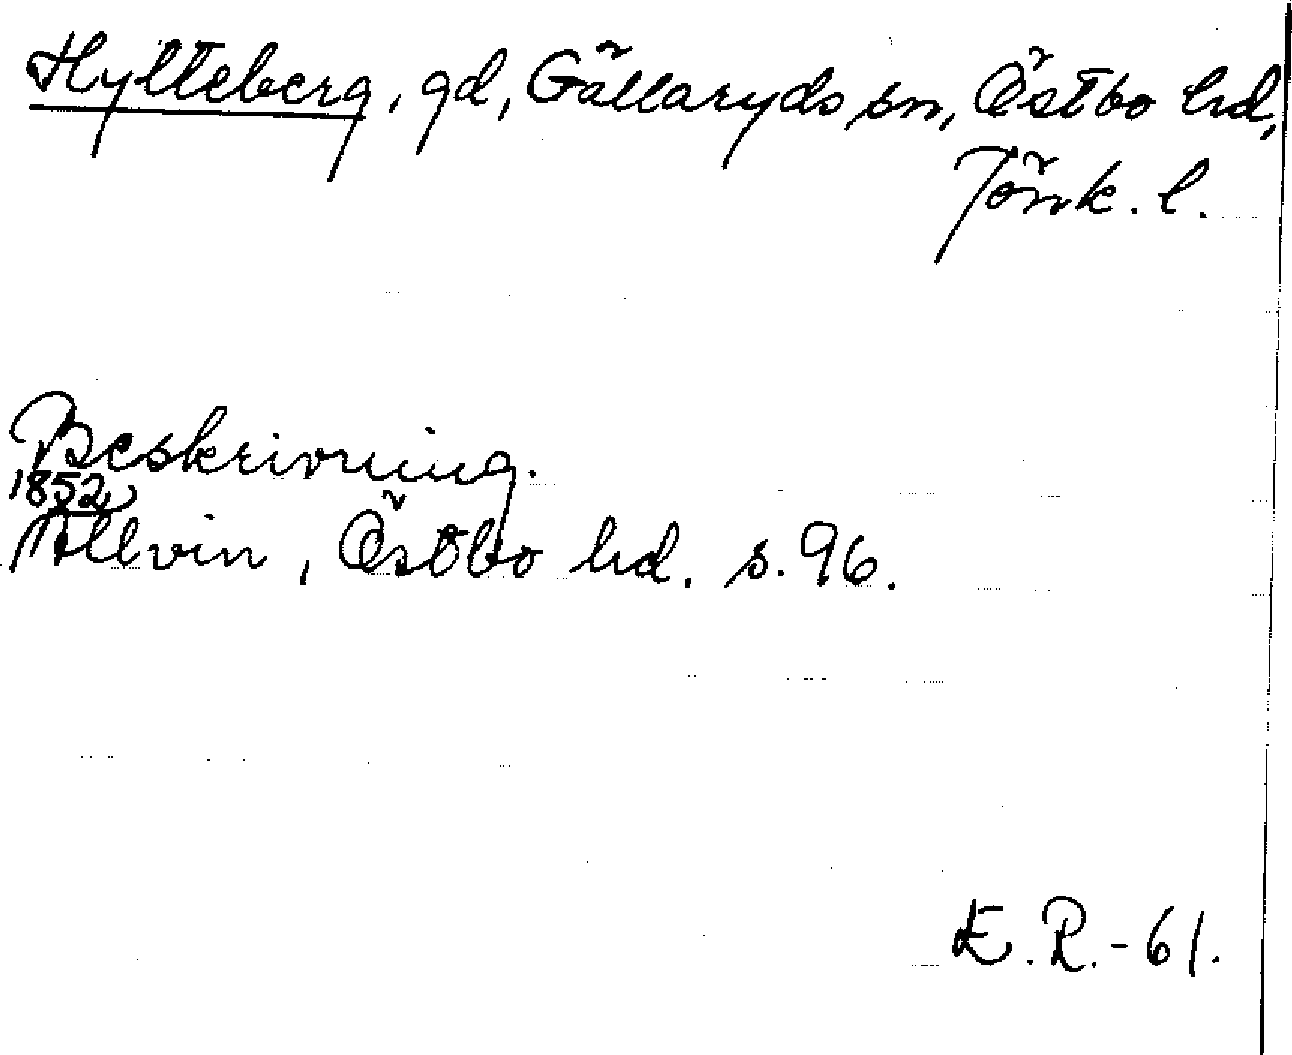 Hylteberg, gd, Gällaryds sn, Östbo hd,
Jönk. l.
Beskrivning.
1852,
Allvin, Östbo hd. s. 96.
E. R. - 61.